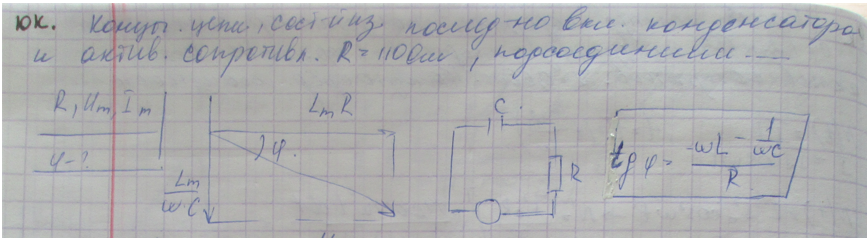 юк. Концы цепи, сост-й из послед-но вкл. конденсатора
и актив. сопротивл. R = 110 Ом, подсоединили
R, Um, Im
φ - ?
Lm R
φ.
Lm
ω·C
C.
R
tg φ = ωL - 1/ωC
R